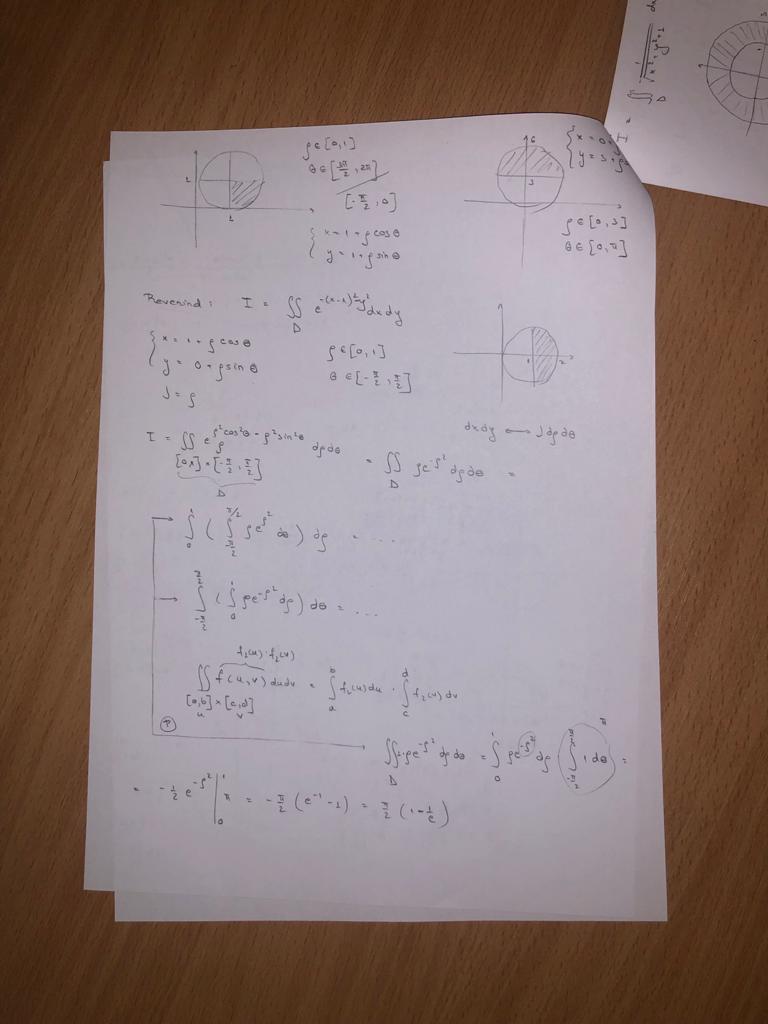 ρ ∈ [0, 1]
θ ∈ [3π/2, 2π]
[-π/2, 0]
{ x = 1 + ρ cos θ
{ y = 1 + ρ sin θ
1
1
6
3
{ x = 0 +
{ y = 3 + ρ
ρ ∈ [0, 3]
θ ∈ [0, π]
I = ∬_D 1/√(x² + y² + 1) dx
Revenind : I = ∬_D e^{-(x-1)² - y²} dx dy
{ x = 1 + ρ cos θ
{ y = 0 + ρ sin θ
J = ρ
ρ ∈ [0, 1]
θ ∈ [-π/2, π/2]
1 2
dx dy ⟷ J dρ dθ
I = ∬_{[0,1] × [-π/2, π/2]} e^{ρ² cos² θ - ρ² sin² θ} ρ dρ dθ = ∬_D ρ e^{-ρ²} dρ dθ =
D
∫_0^1 ( ∫_{-π/2}^{π/2} ρ e^{-ρ²} dθ ) dρ = ...
∫_{-π/2}^{π/2} ( ∫_0^1 ρ e^{-ρ²} dρ ) dθ = ...
f₁(u) · f₂(v)
∬_{[a,b] × [c,d]} f(u, v) du dv = ∫_a^b f₁(u) du · ∫_c^d f₂(v) dv
u v
(P)
∬_D 1 · ρ e^{-ρ²} dρ dθ = ∫_0^1 ρ e^{-ρ²} dρ ∫_{-π/2}^{π/2} 1 dθ =
π
= -1/2 e^{-ρ²} |_0^1 π = -π/2 (e^{-1} - 1) = π/2 (1 - 1/e)